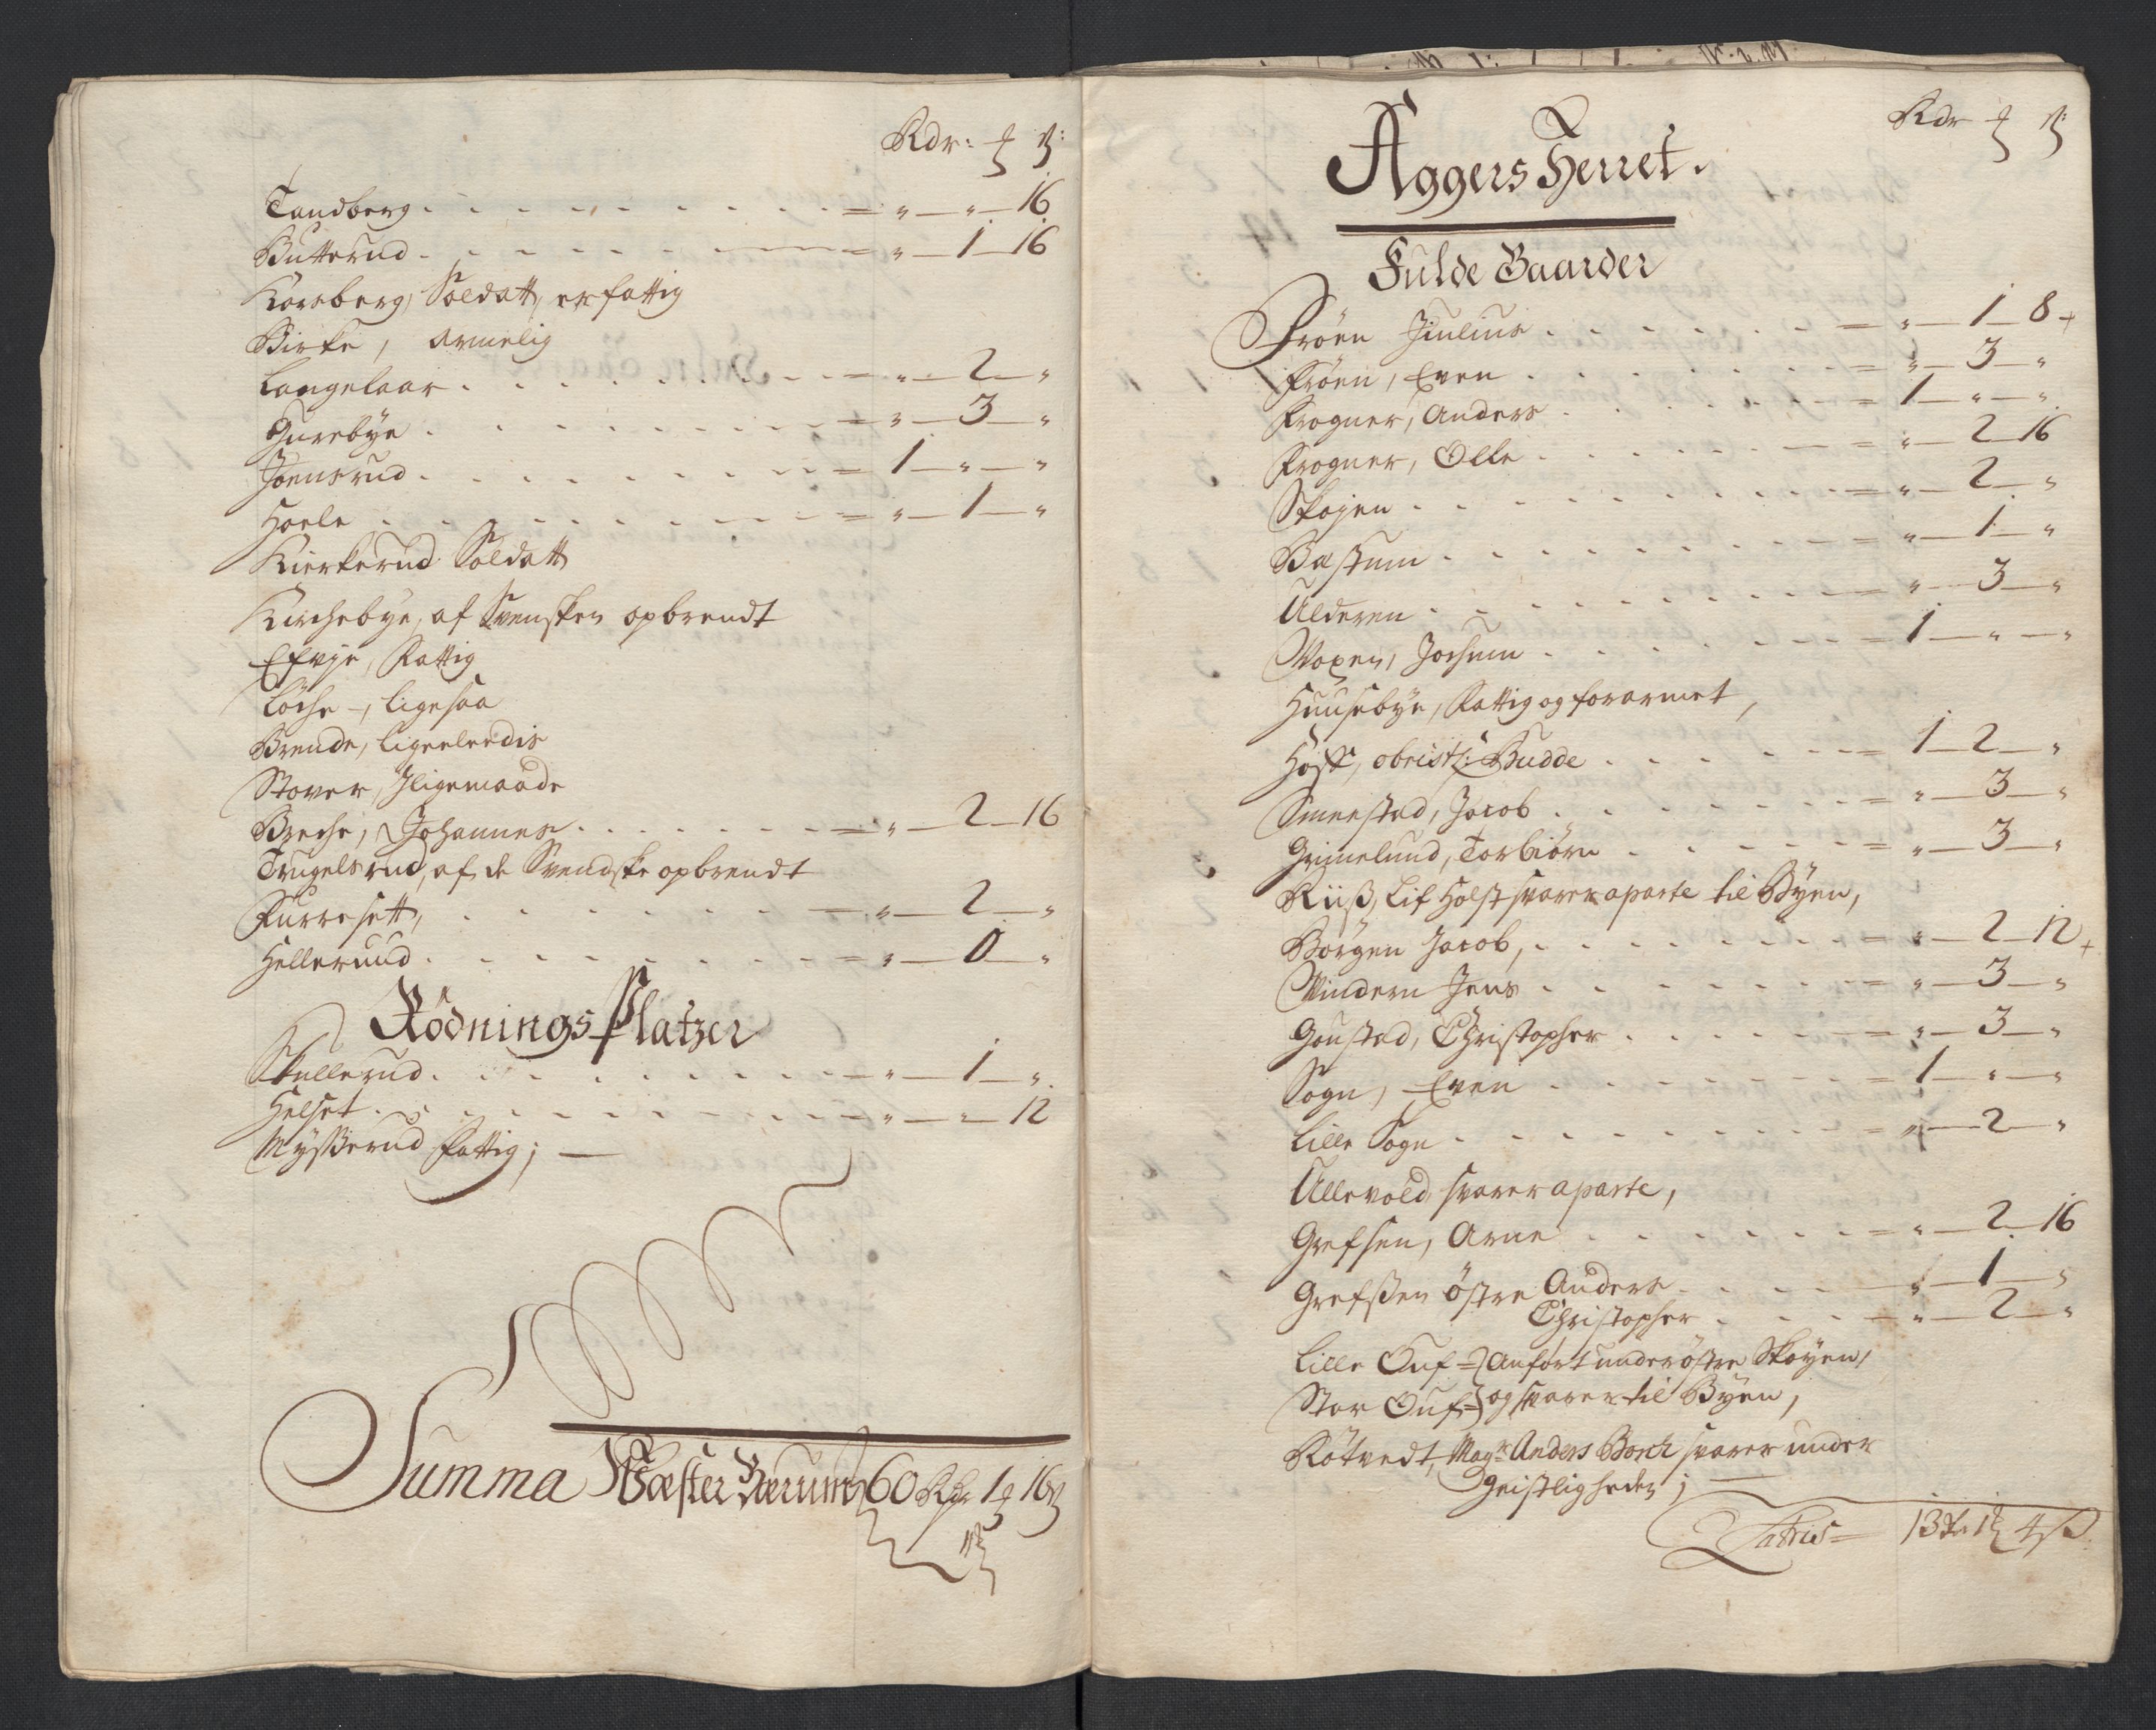 Rdr: ꝑ ß:
Tandberg . . . . . . . . . = " — " — 16
Butterud . . . . . . . = " — 1 — 16
Korsberg, Soldatt, er fattig
Birke, Armelig
Langelaar . . . . . . . . = " — 2 — "
Gurebye . . . . . . . . = " — 3 — "
Joensrud . . . . . . . . = 1 — " — "
Hoele . . . . . . . . = " — 1 — "
Kierkerud Soldatt
Kirchebye, af Svensken opbrendt
Efvje, Fattig
Løche, ligesaa
Brende, ligeeleedis
Stover, Iligemaade
Breche, Johannes . . . . . . . = " — 2 — 16
Trugelsrud, af de Svendske opbrendt
Furresett, . . . . . . . — " — 2 — "
Helleruud . . . . . . . = " — 0 — "
Rødnings Platzer
Skullerud . . . . . . . . — " — 1 — "
Helset . . . . . . . . — " — " — 12
Mysserud Fattig; —
Summa Wæster Bærum 60 Rdr 1 ꝑ 16 ß
Rdr ꝑ ß:
Aggers Herret.
Fulde Gaarder
Frøen Julius . . . . . . = " — 1 — 8 +
Frøen, Even . . . . . . . = " — 3 — "
Frogner, Anders . . . . . . = 1 — " — "
Frogner, Olle . . . . . . = " — 2 — 16
Skøjen . . . . . . . . = " — 2 — "
Bæstum . . . . . . . . = " — 1 — "
Ulderen . . . . . . . . = " — 3 — "
Woxen, Jochum . . . . . . = 1 — " — "
Huusebye, Fattig og forarmet,
Hoff, obristl: Budde . . . . . = 1 — 2 — "
Smerstad, Jacob . . . . . . = " — 3 — "
Grimelund, Torbiørn . . . . . = " — 3 — "
Riiß, Lif Holst svarer aparte til Byen,
Borgen Jacob, . . . . . . . = " — 2 — 12 +
Windern Jens . . . . . . . = " — 3 — "
Goustad, Christopher . . . . . = " — 3 — "
Sogn, Even . . . . . . . = 1 — " — "
Lille Sogn . . . . . . . . = " — 2 — "
Ullevold svarer aparte,
Grefsen, Arne . . . . . . = " — 2 — 16
Grefssen østre Anders . . . . — " — 1 — "
Christopher . . . . = " — 2 — "
Lille Ouf = } Anført under østre Skøyen,
Stor Ouf = } og svarer til Byen,
Røtvedt, Magr Anders Borch svarer under
Geistligheden; —
Latris = 13 dr 1 ꝑ 4 ß